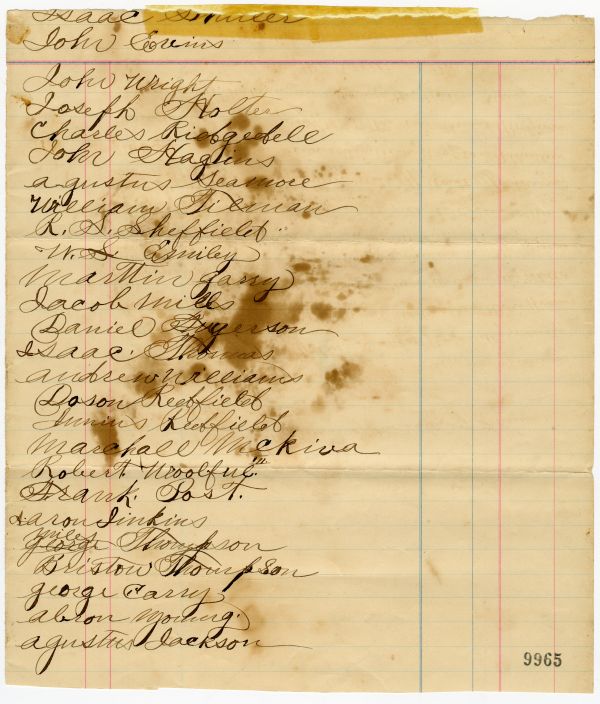 Isaac
John Evins
John Wright
Joseph Holter
Charles Ridgedell
John Hagins
agustus Seamore
William Tilman
R. S. Sheffield
W. S. Emiley
Marttin Garry
Jacob Mills
Daniel
Isaac. Thomas
andrew Williams
Doson Redfield
Junius Redfield
Marchall Mcckiva
Robert. Woolful
Frank. Post.
aron Jinkins
miles
george Thompson
Briston Thompson
george Garry
abron young.
agustus Jackson
9965